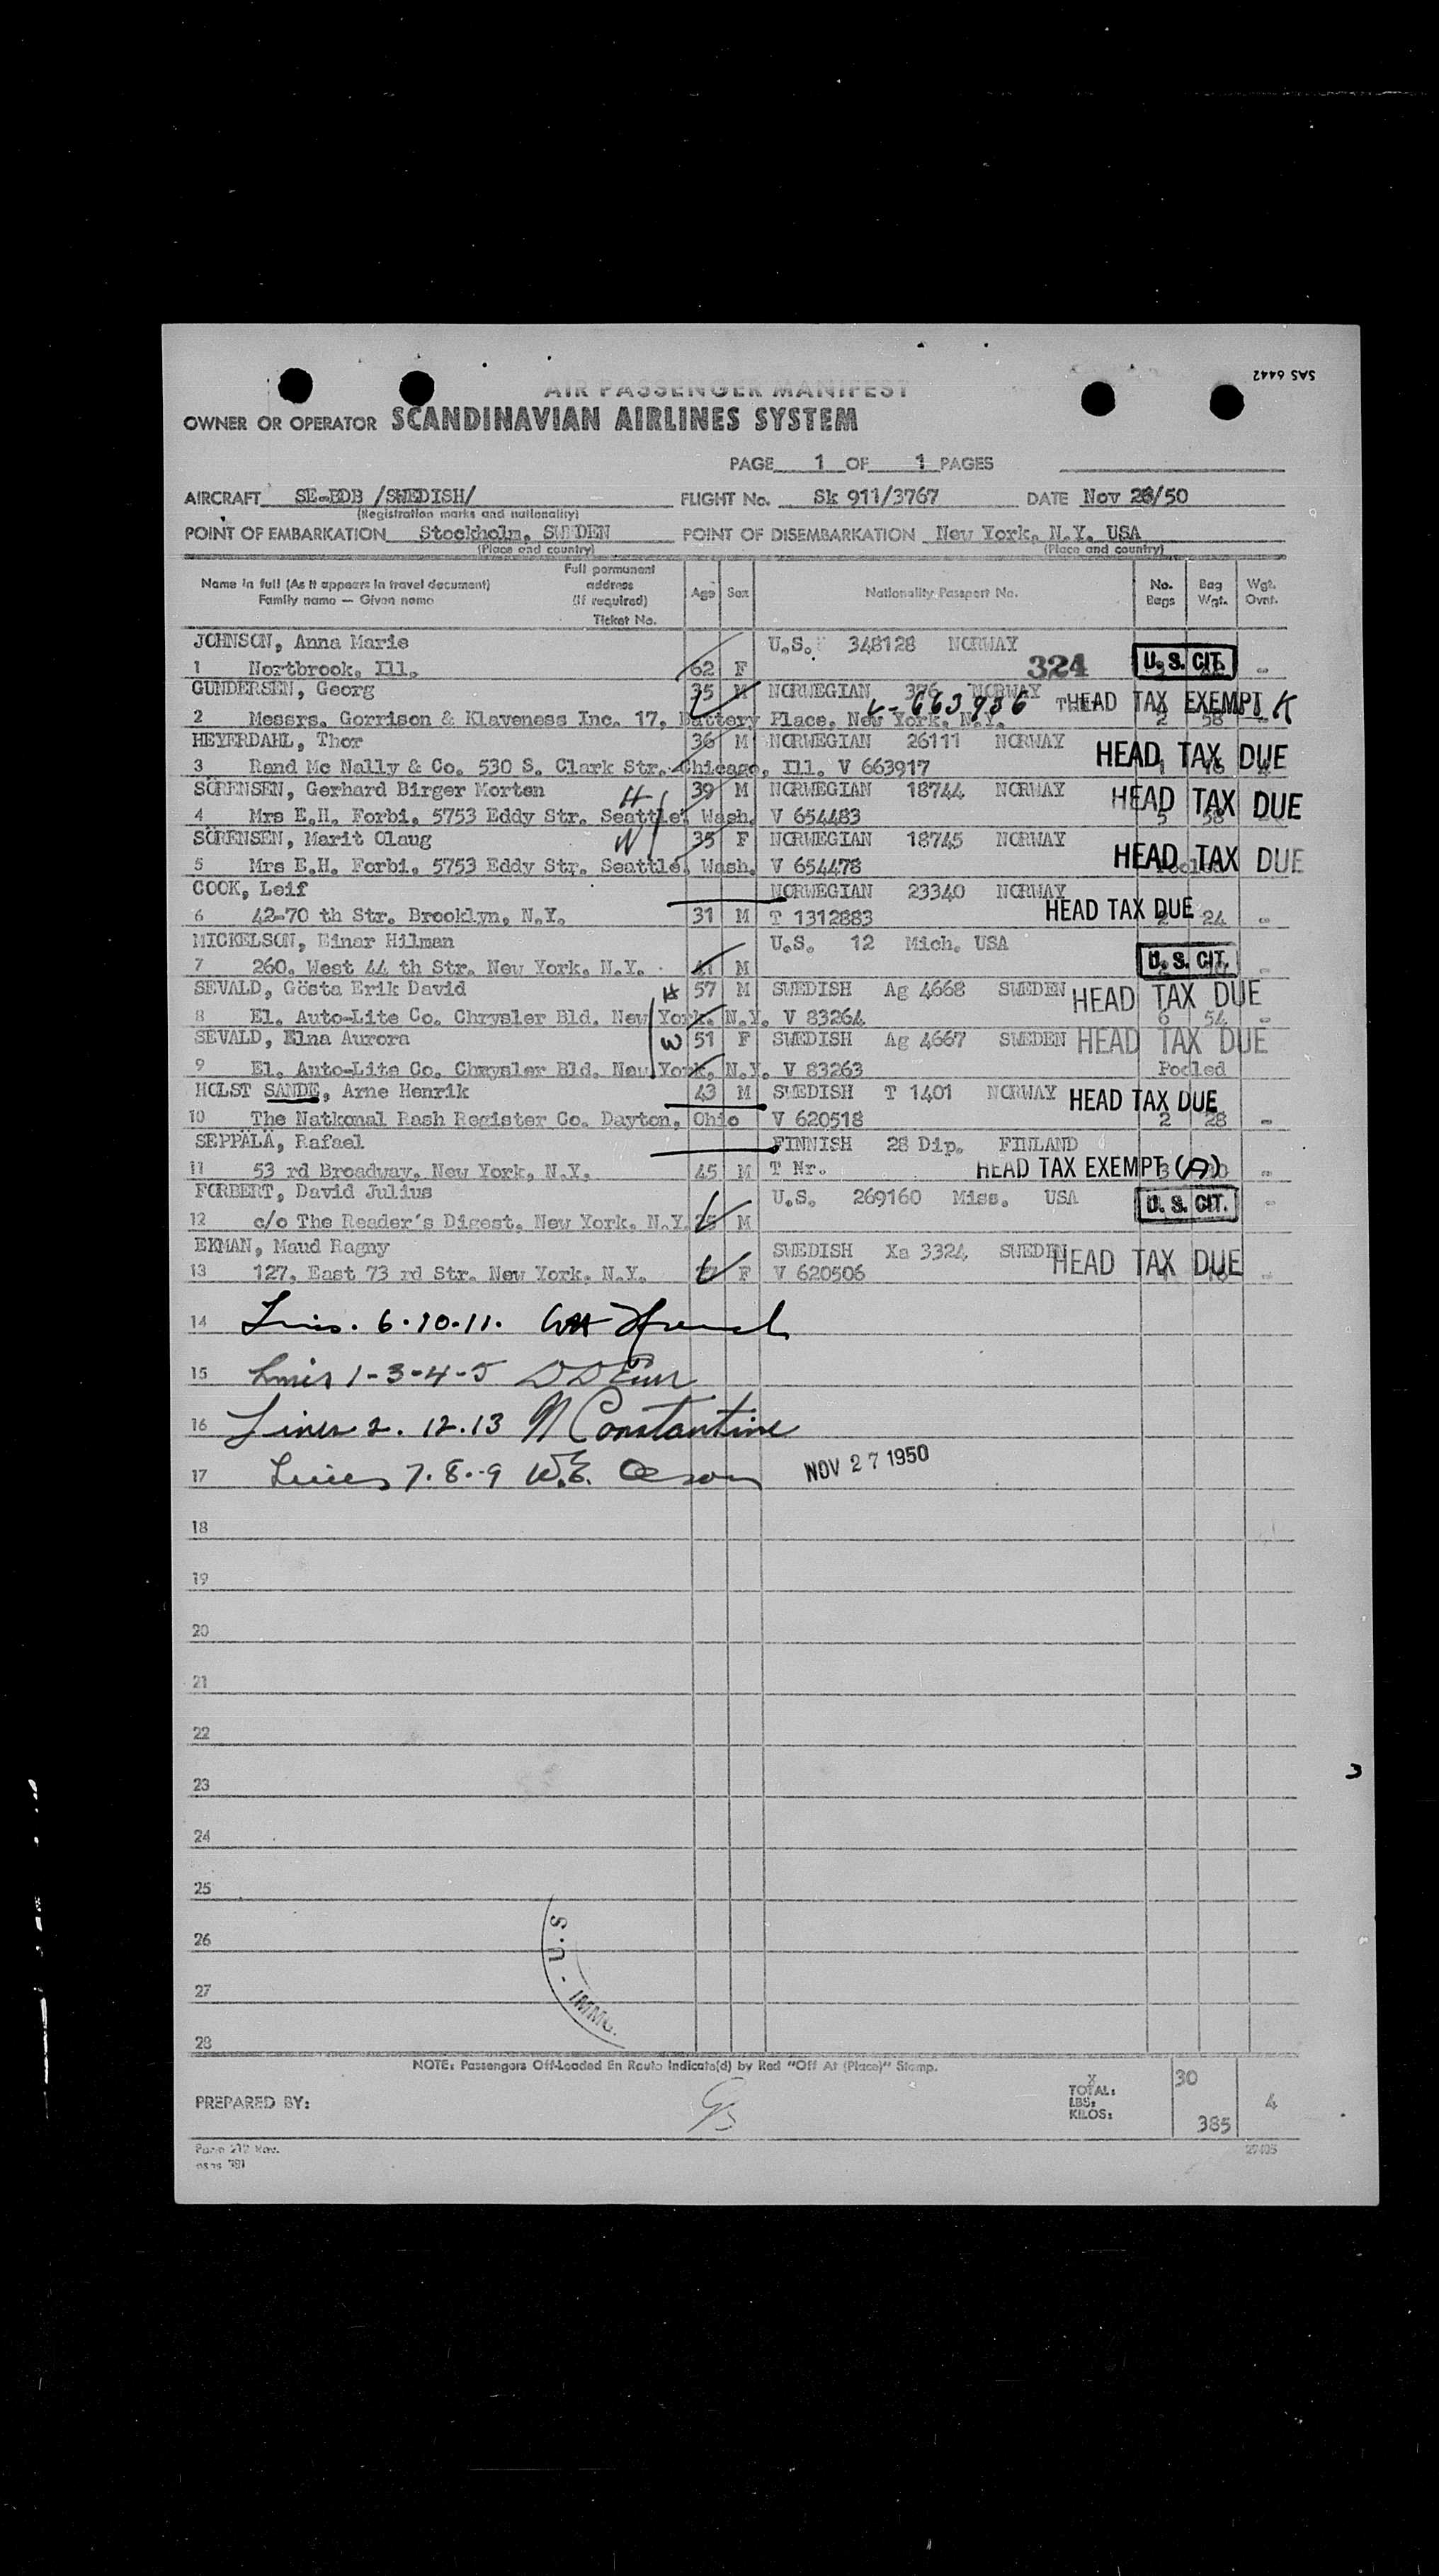 SAS 6442
AIR PASSENGER MANIFEST
OWNER OR OPERATOR SCANDINAVIAN AIRLINES SYSTEM
PAGE 1 OF 1 PAGES
AIRCRAFT SE-BDB /SWEDISH/ FLIGHT No. Sk 911/3767 DATE Nov 26/50
(Registration marks and nationality)
POINT OF EMBARKATION Stockholm, SWEDEN POINT OF DISEMBARKATION New York, N.Y. USA
(Place and country) (Place and country)
Name in full (As it appears in travel document) Family name — Given name Full permanent address (if required) Ticket No. Age Sex Nationality Passport No. No. Bags Bag Wgt. Wgt. Ovnt.
JOHNSON, Anna Marie U.S. 348128 NORWAY
1 Nortbrook, Ill. 62 F 324 U.S. CIT. -
GUNDERSEN, Georg 35 M NORWEGIAN 376 NORWAY HEAD TAX EXEMPT K
2 Messrs. Gorrison & Klaveness Inc. 17, Battery Place, New York, N.Y. V-663936 2 58
HEYERDAHL, Thor 36 M NORWEGIAN 26111 NORWAY HEAD TAX DUE
3 Rand Mc Nally & Co. 530 S. Clark Str. Chicago, Ill. V 663917 1 16
SÖRENSEN, Gerhard Birger Morten H 39 M NORWEGIAN 18744 NORWAY HEAD TAX DUE
4 Mrs E.H. Forbi, 5753 Eddy Str. Seattle, Wash. V 654483 5 58
SÖRENSEN, Marit Olaug W 35 F NORWEGIAN 18745 NORWAY HEAD TAX DUE
5 Mrs E.H. Forbi, 5753 Eddy Str. Seattle, Wash. V 654478 Pooled
COOK, Leif NORWEGIAN 23340 NORWAY HEAD TAX DUE
6 42-70 th Str. Brooklyn, N.Y. 31 M T 1312883 2 24 -
MICKELSON, Einar Hilman U.S. 12 Mich. USA
7 260, West 44 th Str. New York, N.Y. 41 M U.S. CIT. -
SEVALD, Gösta Erik David H 57 M SWEDISH Ag 4668 SWEDEN HEAD TAX DUE
8 El. Auto-Lite Co. Chrysler Bld. New York, N.Y. V 83264 6 54 -
SEVALD, Elna Aurora W 51 F SWEDISH Ag 4667 SWEDEN HEAD TAX DUE
9 El. Auto-Lite Co. Chrysler Bld. New York, N.Y. V 83263 Pooled
HOLST SANDE, Arne Henrik 43 M SWEDISH T 1401 NORWAY HEAD TAX DUE
10 The Natkonal Rash Register Co. Dayton, Ohio V 620518 2 28 -
SEPPÄLÄ, Rafael FINNISH 28 Dip. FINLAND
11 53 rd Broadway, New York, N.Y. 45 M T Nr. HEAD TAX EXEMPT (A) -
FORBERT, David Julius U.S. 269160 Miss. USA
12 c/o The Reader's Digest, New York, N.Y. M U.S. CIT. -
EKMAN, Maud Ragny SWEDISH Xa 3324 SWEDEN HEAD TAX DUE
13 127, East 73 rd Str. New York, N.Y. F V 620506 -
14 Lines. 6.10.11.
15 Lines 1-3-4-5
16 Lines 2. 12.13 N Constantine
17 Lines 7.8.9 W.E. NOV 27 1950
18
19
20
21
22
23
24
25
26
27
28
U.S. - IMMG.
NOTE: Passengers Off-Loaded En Route Indicate(d) by Red "Off At (Place)" Stamp.
PREPARED BY: X TOTAL: LBS: KILOS: 30 385 4
Form 212 Rev.